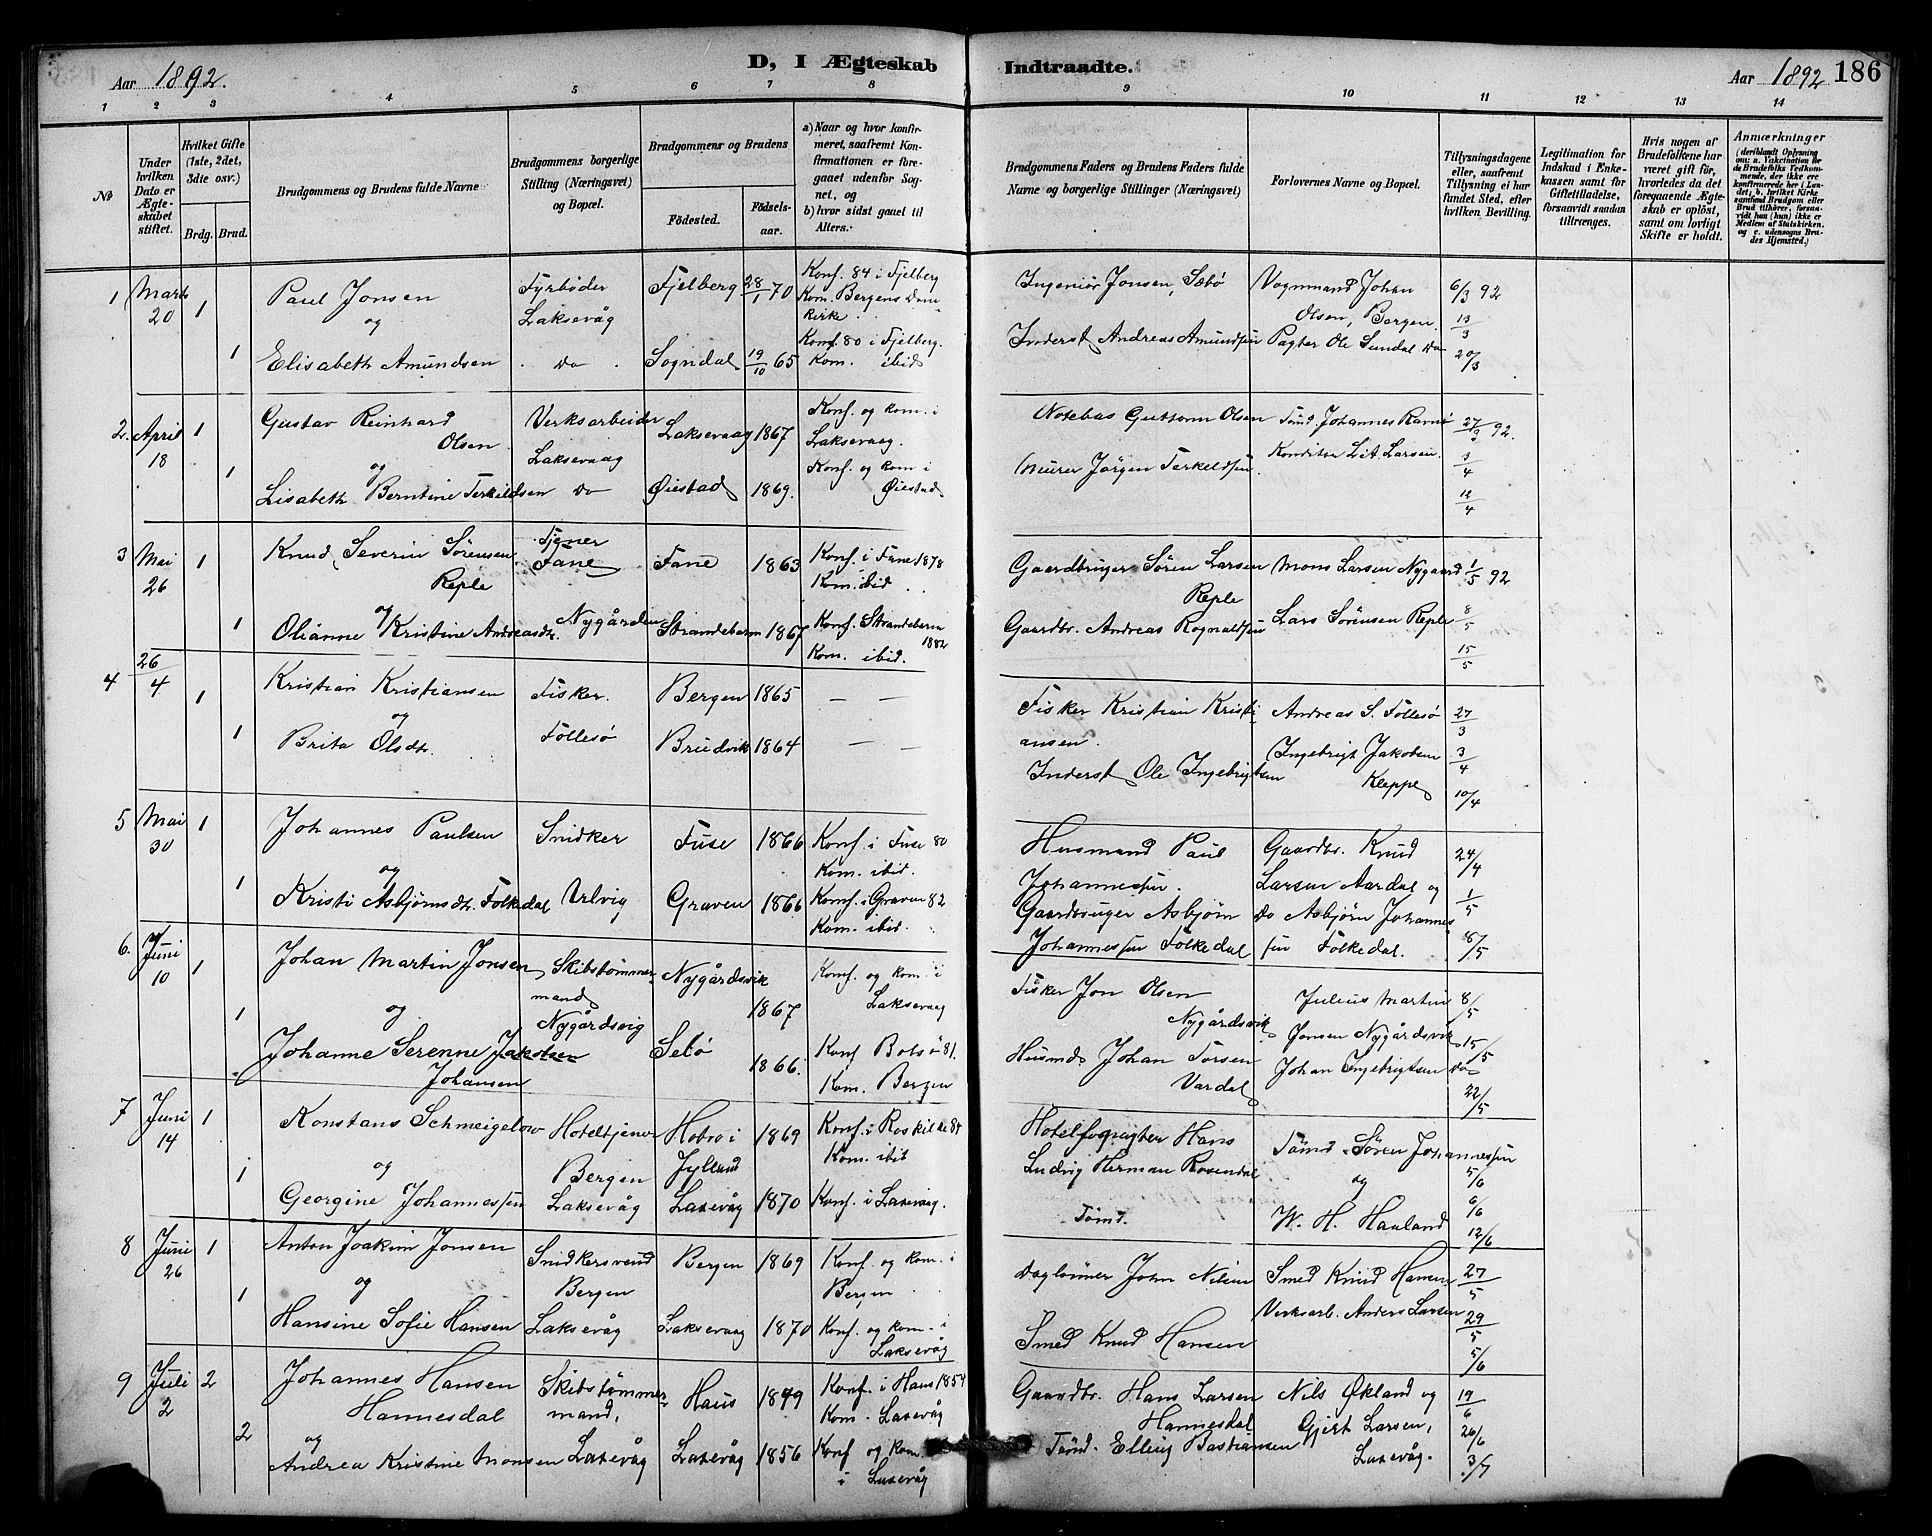 Aar 1892.
D, I Ægteskab Indtraadte.
Aar 1892 186
1 2 3 4 5 6 7 8 9 10 11 12 13 14
No
Under hvilken Dato er Ægteskabet stiftet.
Hvilket Gifte (1ste, 2det, 3dte osv.)
Brdg. Brud.
Brudgommens og Brudens fulde Navne
Brudgommens borgerlige Stilling (Næringsvei) og Bopæl.
Brudgommens og Brudens
Födested. Födsels-aar.
a) Naar og hvor konfirmeret, saafremt Konfirmationen er foregaaet udenför Sognet, og
b) hvor sidst gaaet til Alters.
Brudgommens Faders og Brudens Faders fulde Navne og borgerlige Stillinger (Næringsvei)
Forlovernes Navne og Bopæl.
Tillysningsdagene eller, saafremt Tillysning ei har fundet Sted, efter hvilken Bevilling.
Legitimation for Indskud i Enkekassen samt for Giftetilladelse, forsaavidt saadan tiltrænges.
Hvis nogen af Brudefolkene har været gift för, hvorledes da det foregaaende Ægteskab er oplöst, samt om lovligt Skifte er holdt.
Anmærkninger
(deriblandt Oplysning om: a. Vakcination for de Brudefolks Vedkommende, der ikke ere konfirmerede her i Landet; b, hvilket Kirkesamfund Brudgom eller Brud tilhörer, forsaavidt han (hun) ikke er Medlem af Statskirken, og c. udensogns Brudes Hjemsted.)
1 Marts 20 1 Paul Jonsen Fyrböder Laksevåg Fjelberg 28/1 70 Konf. 84 i Fjelberg Kom. Bergens Domkirke. Ingeniör Jonsen, Sæbö Vognmand Johan Olsen, Bergen. 6/3 92
og 13/3
1 Elisabeth Amundsen do Sogndal 19/10 65 Konf. 80 i Fjelberg. Kom. ibid Inderst Andreas Amundsen Pagter Ole Sundal do 20/3
2. April 18 1 Gustav Reinhard Olsen Verksarbeider Laksevaag Laksevaag 1867 Konf. og kom. i Laksevaag. Notebas Guttorm Olsen Tömd. Johannes Ravnö 27/3 92.
og 3/4
1 Lisabeth Berntine Terkildsen do Öiestad 1869. Konf. og kom i Öiestad Murer Jörgen Terkildsen. Konditor Larsen.
3 Mai 26 1 Knud Severin Sörensen Reple Tjener Fane Fane 1863 Konf. i Fane 1878 Kom. ibid Gaardbruger Sören Larsen Reple Mons Larsen Nygaard 1/5 92
og 8/5
1 Olianne Kristine Andreasdr. Nygården Strandebarm 1867 Konf. Strandebarm 1882 Kom. ibid. Gaardbr. Andreas Rognaldsen Lars Sörensen Reple 15/5
4 26/4 1 Kristian Kristiansen Fisker. Bergen 1865 — — Fisker Kristian Kristiansen. Andreas S. Follesö 27/3
og 3/4
1 Brita Olsdr. Follesö Bruvik 1864 — — Inderst Ole Ingebrigtsen Ingebrigt Jakobsen Kleppe 10/4
5 Mai 30 1 Johannes Paulsen Snidker Fuse 1866 Konf. i Fuse 80 Kom. ibid. Husmand Paul Johannessen. Gaardbr. Knud Larsen Aardal og 24/4
og 1/5
1 Kristi Asbjörnsdr. Folkedal Ulvig Graven 1866 Konf. i Graven 82 Kom. ibid. Gaardbruger Asbjörn Johannessen Folkedal do Asbjörn Johannessen Folkedal. 8/5
6. Juni 10 1 Johan Martin Jonsen Skibstömmermand Nygårdsvig Nygårdsvik 1867 Konf. og kom. i Laksevaag Fisker Jon Olsen Nygårdsvik Julius Martin Jonsen Nygårdsvik 8/5
og 15/5
1 Johanne Serenne Jakobsen Johansen Sebö 1866. Konf 81. Kom. Bergen Husmd. Johan Torsen Vardal Johan Ingebrigtsen do 22/5
7 Juni 14 1 Konstans Schmeigelow Hoteltjener Bergen Hobro i Jylland 1869 Konf. i Roskilde 84 Kom. ibid Hotelforpagter Hans Ludvig Herman Rosendal Tömd. Sören Johannessen 5/6
og og 6/6
1 Georgine Johannessen Laksevåg Laxevåg 1870 Konf. i Laxevaag. Tömd. W. H. Hauland 12/6
8 Juni 26 1 Anton Joakim Jonsen Snidkersvend Bergen Bergen 1869 Konf. og kom. i Bergen Daglönner John Nilsen Smed Knud Hansen 27/5
og
1 Hansine Sofie Hansen Laksevåg Laksevaag 1870 Konf. og kom. i Laksevåg Smed Knud Hansen Verksarb. Anders Larsen 29/5 5/6
9 Juli 2 2 Johannes Hansen Hannesdal Skibstömmermand, Haus 1849 Konf. i Haus 1854 Kom. Laxevåg Gaardbr. Hans Larsen Hannesdal Nils Ökland og 19/6
og 26/6
2 Andrea Kristine Monsen Laxevåg Laxevåg 1856 Konf og kom. i Laxevåg Tömd. Elling Bastiansen Gjert Larsen, Laxevåg. 3/7